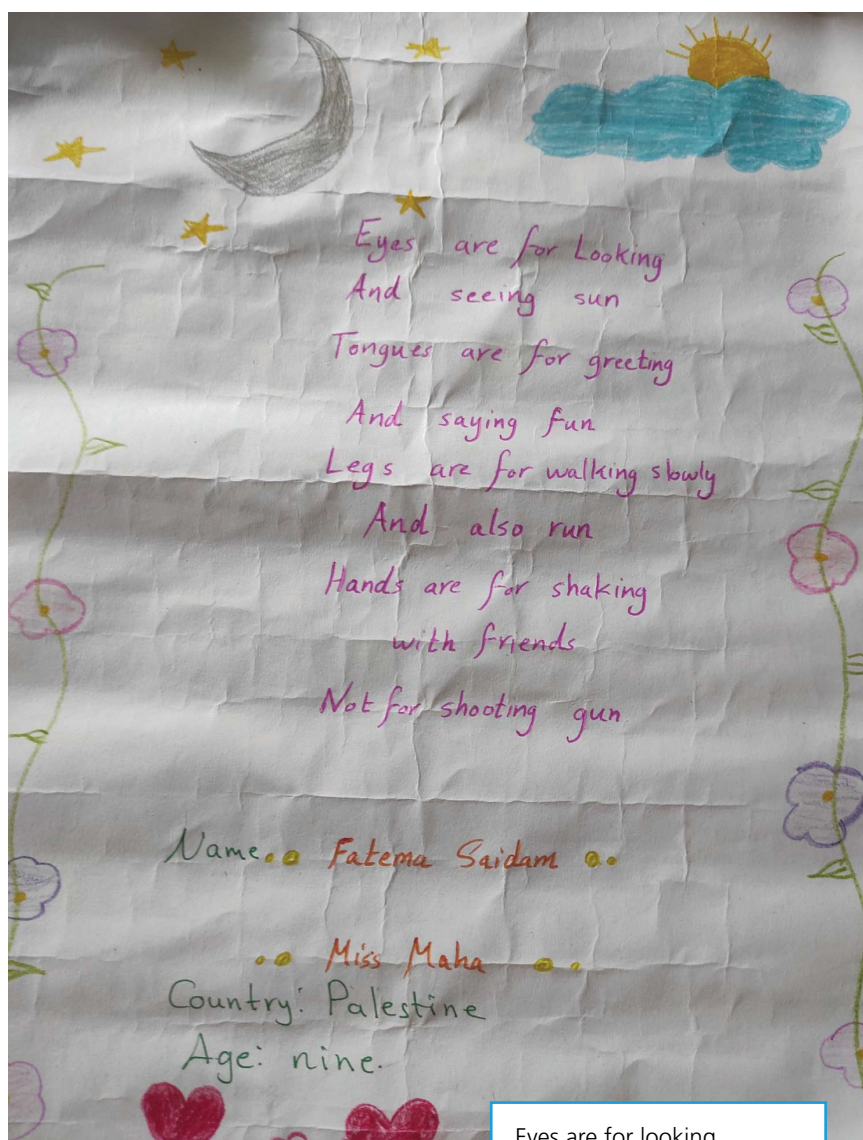 Eyes are for Looking
And seeing sun
Tongues are for greeting
And saying fun
Legs are for walking slowly
And also run
Hands are for shaking
with friends
Not for shooting gun
Name.. Fatema Saidam ..
.. Miss Maha ..
Country: Palestine
Age: nine.
Eyes are for looking